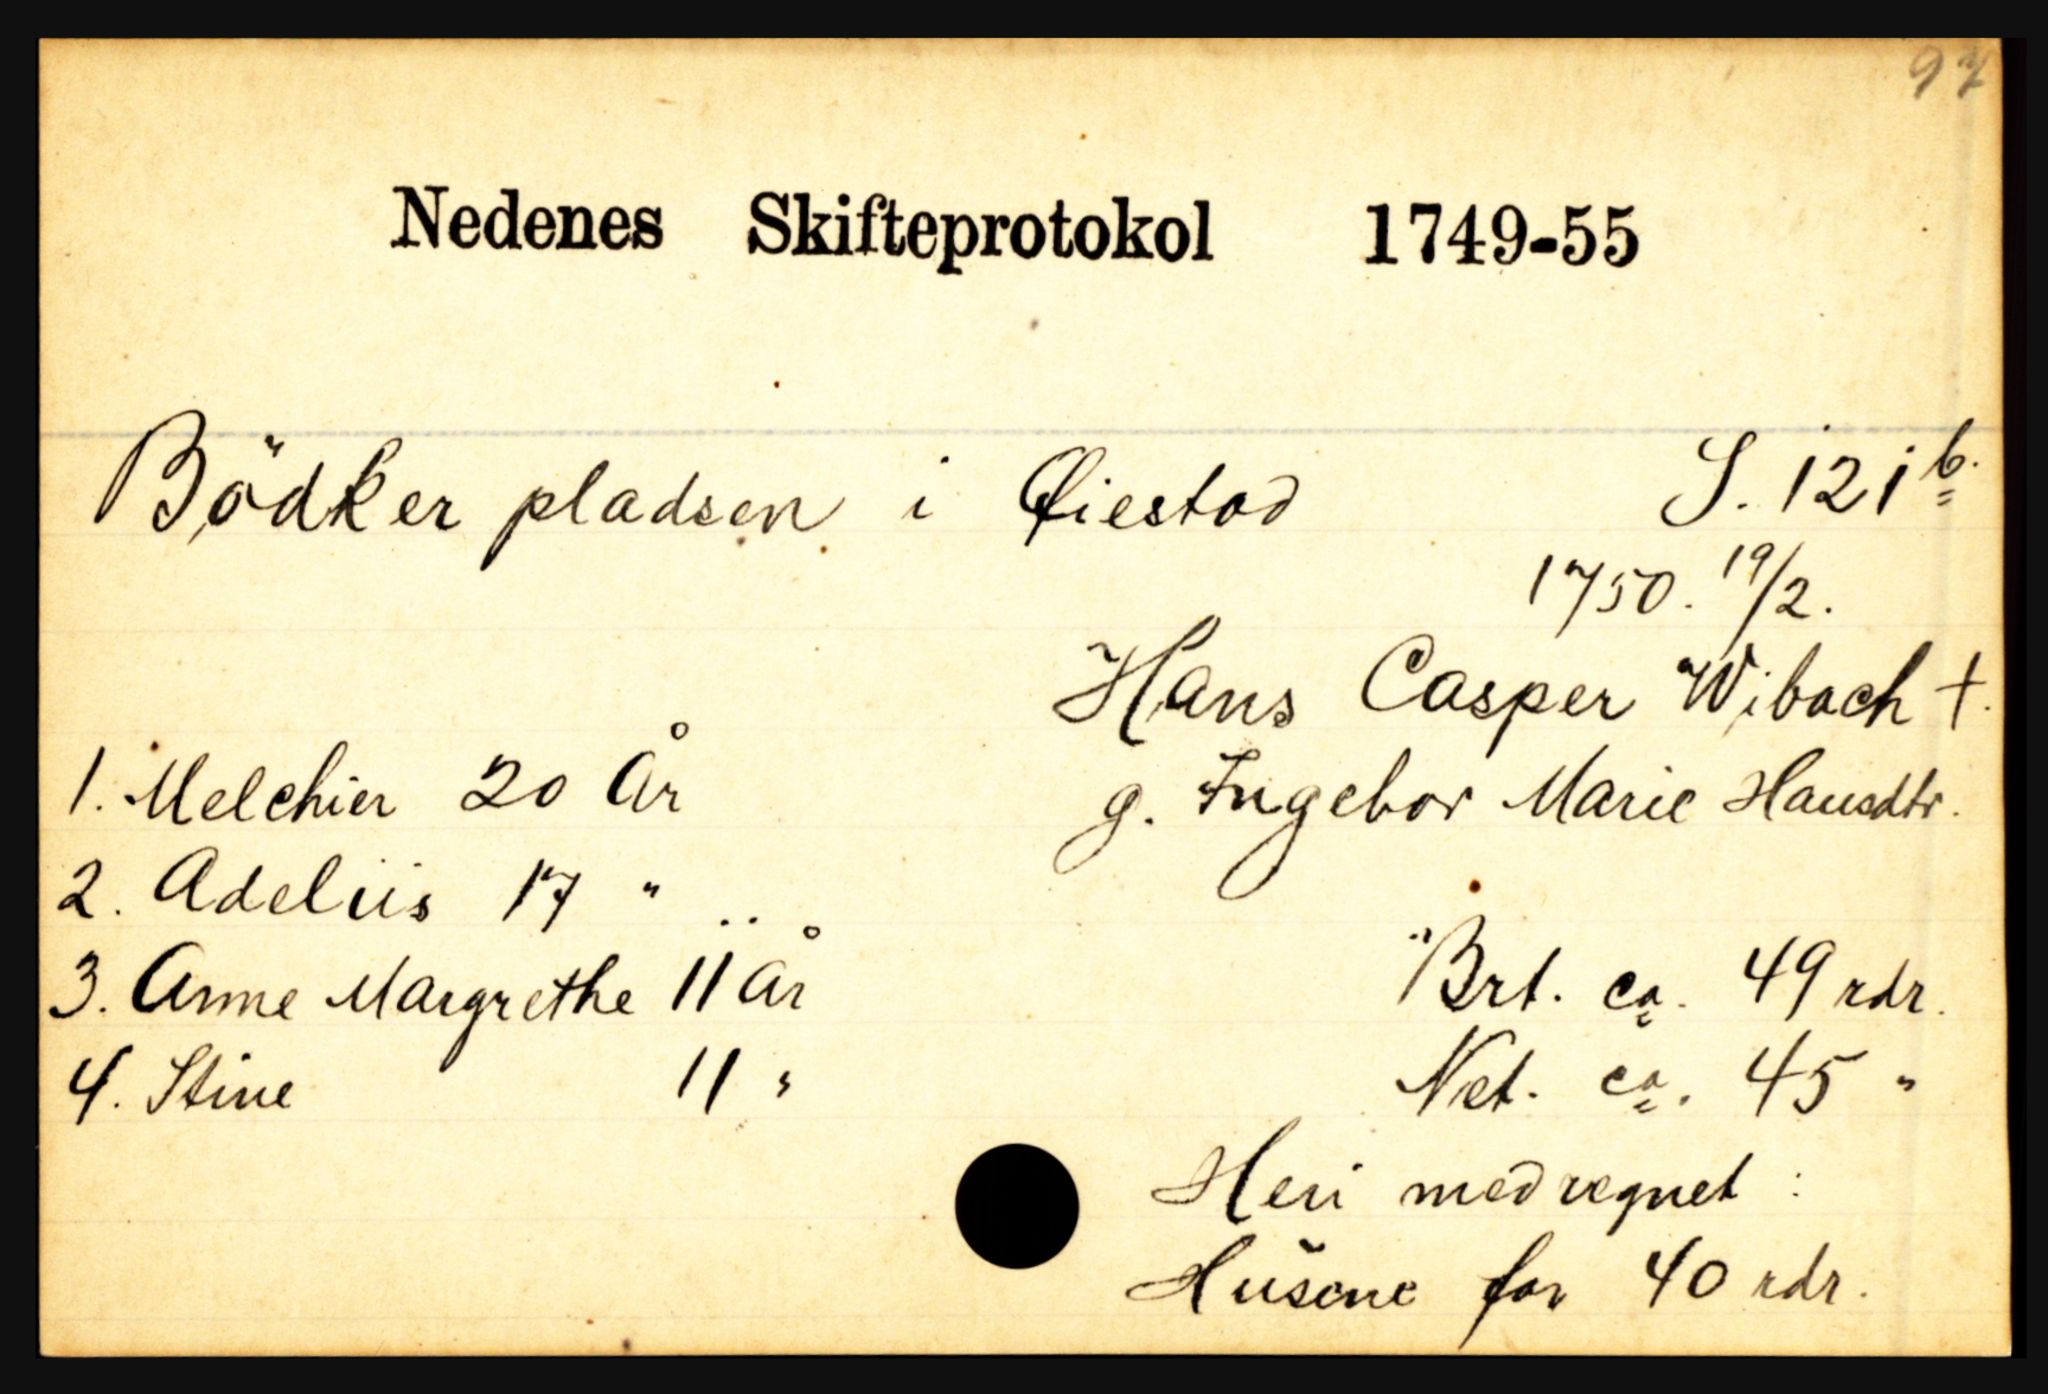 97
Nedenes Skifteprotokol 1749-55
Bödker pladsen i Øiestad S. 121b.
1750. 19/2.
Hans Casper Wibach †.
g. Ingebor Marie Hansdtr.
1. Melchier 20 År
2. Adeliis 17 "
3. Anne Margrethe 11 år
4. Stine 11 "
Brt. ca. 49 rdr.
Net. ca. 45 "
Heri medregnet :
Husene for 40 rdr.